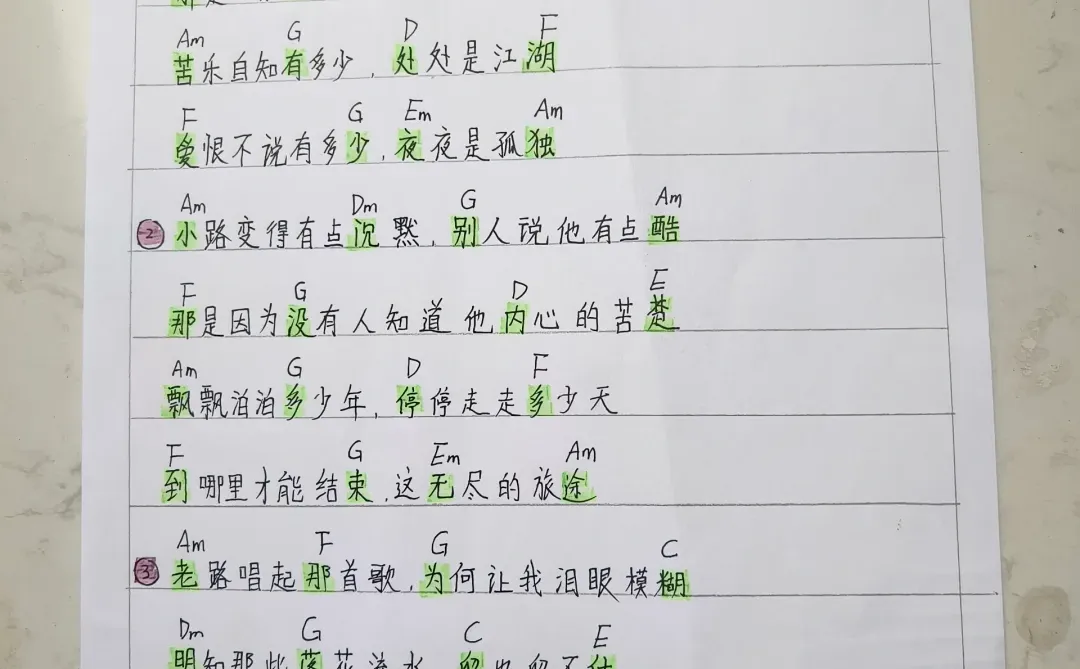 Am G D F
苦乐自知有多少，处处是江湖
F G Em Am
爱恨不说有多少，夜夜是孤独
Am Dm G Am
2 小路变得有点沉默，别人说他有点酷
F G D E
那是因为没有人知道他内心的苦楚
Am G D F
飘飘泊泊多少年，停停走走多少天
F G Em Am
到哪里才能结束，这无尽的旅途
Am F G C
3 老路唱起那首歌，为何让我泪眼模糊
Dm G C E
明知那些落花流水，留也留不住